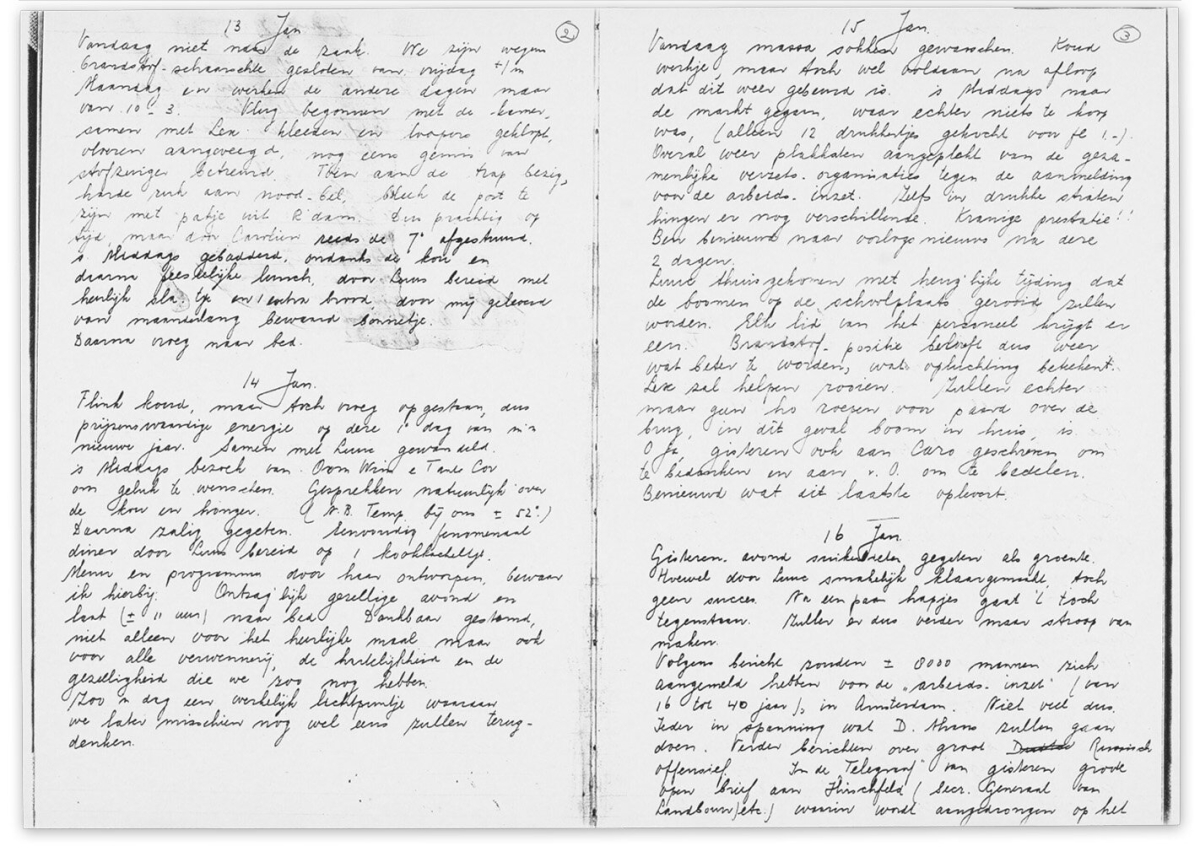 13 Jan
2
Vandaag niet naar de zaak. We zijn wegens
brandstof-schaarschte gesloten van vrijdag t/m
Maandag en werken de andere dagen maar
van 10 - 3. Vlug begonnen met de kamer,
samen met Lex. Kleeden en loopers geklopt,
vloeren aangeveegd, nog eens gemis van
stofzuiger betreurd. Toen aan de trap bezig,
harde ruk aan nood-bel, bleek de post te
zijn met pakje uit R'dam. Dus prachtig op
tijd, maar door Carolien reeds de 7e afgestuurd.
's Middags gebadderd, ondanks de kou en
daarna feestelijke lunch, door Luus bereid met
heerlijk slaatje en 1 extra brood door mij geleverd
van maandenlang bewaard bonnetje.
Daarna vroeg naar bed.
14 Jan.
Flink koud, maar toch vroeg op gestaan, dus
prijzenswaardige energie op deze 1e dag van m'n
nieuwe jaar. Samen met Luus gewandeld.
's Middags bezoek van Oom Wim & Tante Cor
om geluk te wenschen. Gesprekken natuurlijk over
de kou en honger. (N.B. Temp. bij ons ± 52°.)
Daarna zalig gegeten. Eenvoudig fenomenaal
diner door Luus bereid op 1 kookkacheltje.
Menu en programma door haar ontworpen, bewaar
ik hierbij. Ontzag'lijk gezellige avond en
laat (± 11 uur) naar bed. Dankbaar gestemd,
niet alleen voor het heerlijke maal maar ook
voor alle verwennerij, de hartelijkheid en de
gezelligheid die we zoo nog hebben.
Zoo 'n dag een werkelijk lichtpuntje waaraan
we later misschien nog wel eens zullen terug-
denken.
15 Jan.
3
Vandaag massa sokken gewasschen. Koud
werkje, maar toch wel voldaan, na afloop
dat dit weer gebeurd is. 's Middags naar
de markt gegaan, waar echter niets te koop
was, (alleen 12 drukkertjes gekocht voor fe 1.-).
Overal weer plakkaten aangeplakt van de geza-
menlijke verzets-organisaties tegen de aanmelding
voor de arbeids-inzet. Zelfs in drukke straten
hingen er nog verschillende. Kranige prestatie!!
Ben benieuwd naar oorlogsnieuws na deze
2 dagen.
Luuc thuisgekomen met heug'lijke tijding dat
de boomen op de schoolplaats gerooid zullen
worden. Elk lid van het personeel krijgt er
een. Brandstof-positie belooft dus weer
wat beter te worden, wat opluchting beteekent.
Lex zal helpen rooien. Zullen echter
maar geen ho roepen voor paard over de
brug, in dit geval boom in huis, is.
O ja, gisteren ook aan Caro geschreven om
te bedanken en aan v. O. om te bedelen.
Benieuwd wat dit laatste oplevert.
16 Jan.
Gisteren-avond suikerbieten gegeten als groente.
Hoewel door Luuc smakelijk klaargemaakt, toch
geen succes. Na een paar hapjes gaat 't toch
tegenstaan. Zullen er dus verder maar stroop van
maken.
Volgens bericht zouden ± 8000 mannen zich
aangemeld hebben voor de „arbeids-inzet" (van
16 tot 40 jaar), in Amsterdam. Niet veel dus.
Ieder in spanning wat D. thans zullen gaan
doen. Verder berichten over groot Russisch
offensief. In de „Telegraaf" van gisteren groote
open brief aan Hirschfeld (Secr. Generaal van
Landbouw, etc.) waarin wordt aangedrongen op het